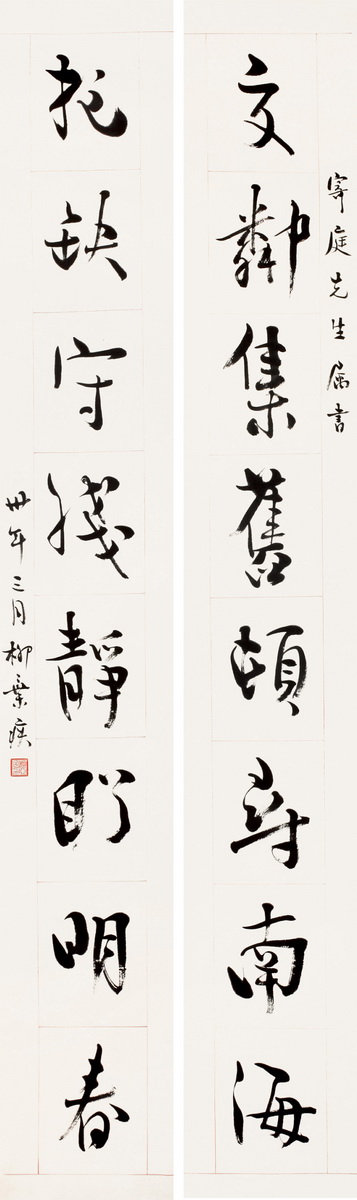 寄庭先生属書
文鄰集舊頓尋南海
抱缺守殘靜盼明春
卅年三月柳棄疾